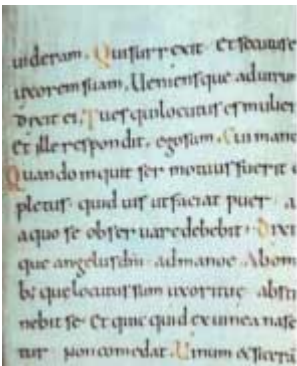 uideram. Qui surrexit. Et secutus e
uxorem suam. Veniensque ad uirum
Dixit ei. Tu es qui locutus es mulier
Et ille respondit. ego sum. Cui manu
Quando inquit sermo tuus fuerit e
pletus. quid uis ut faciat puer. a
a quo se obseruare debebit. Dixi
que angelus dni ad manue. Ab om
bꝫ que locutus sum uxori tue abst
nebit se. Et quicquid ex uinea nasc
tur non comedat. Uinum & sicera